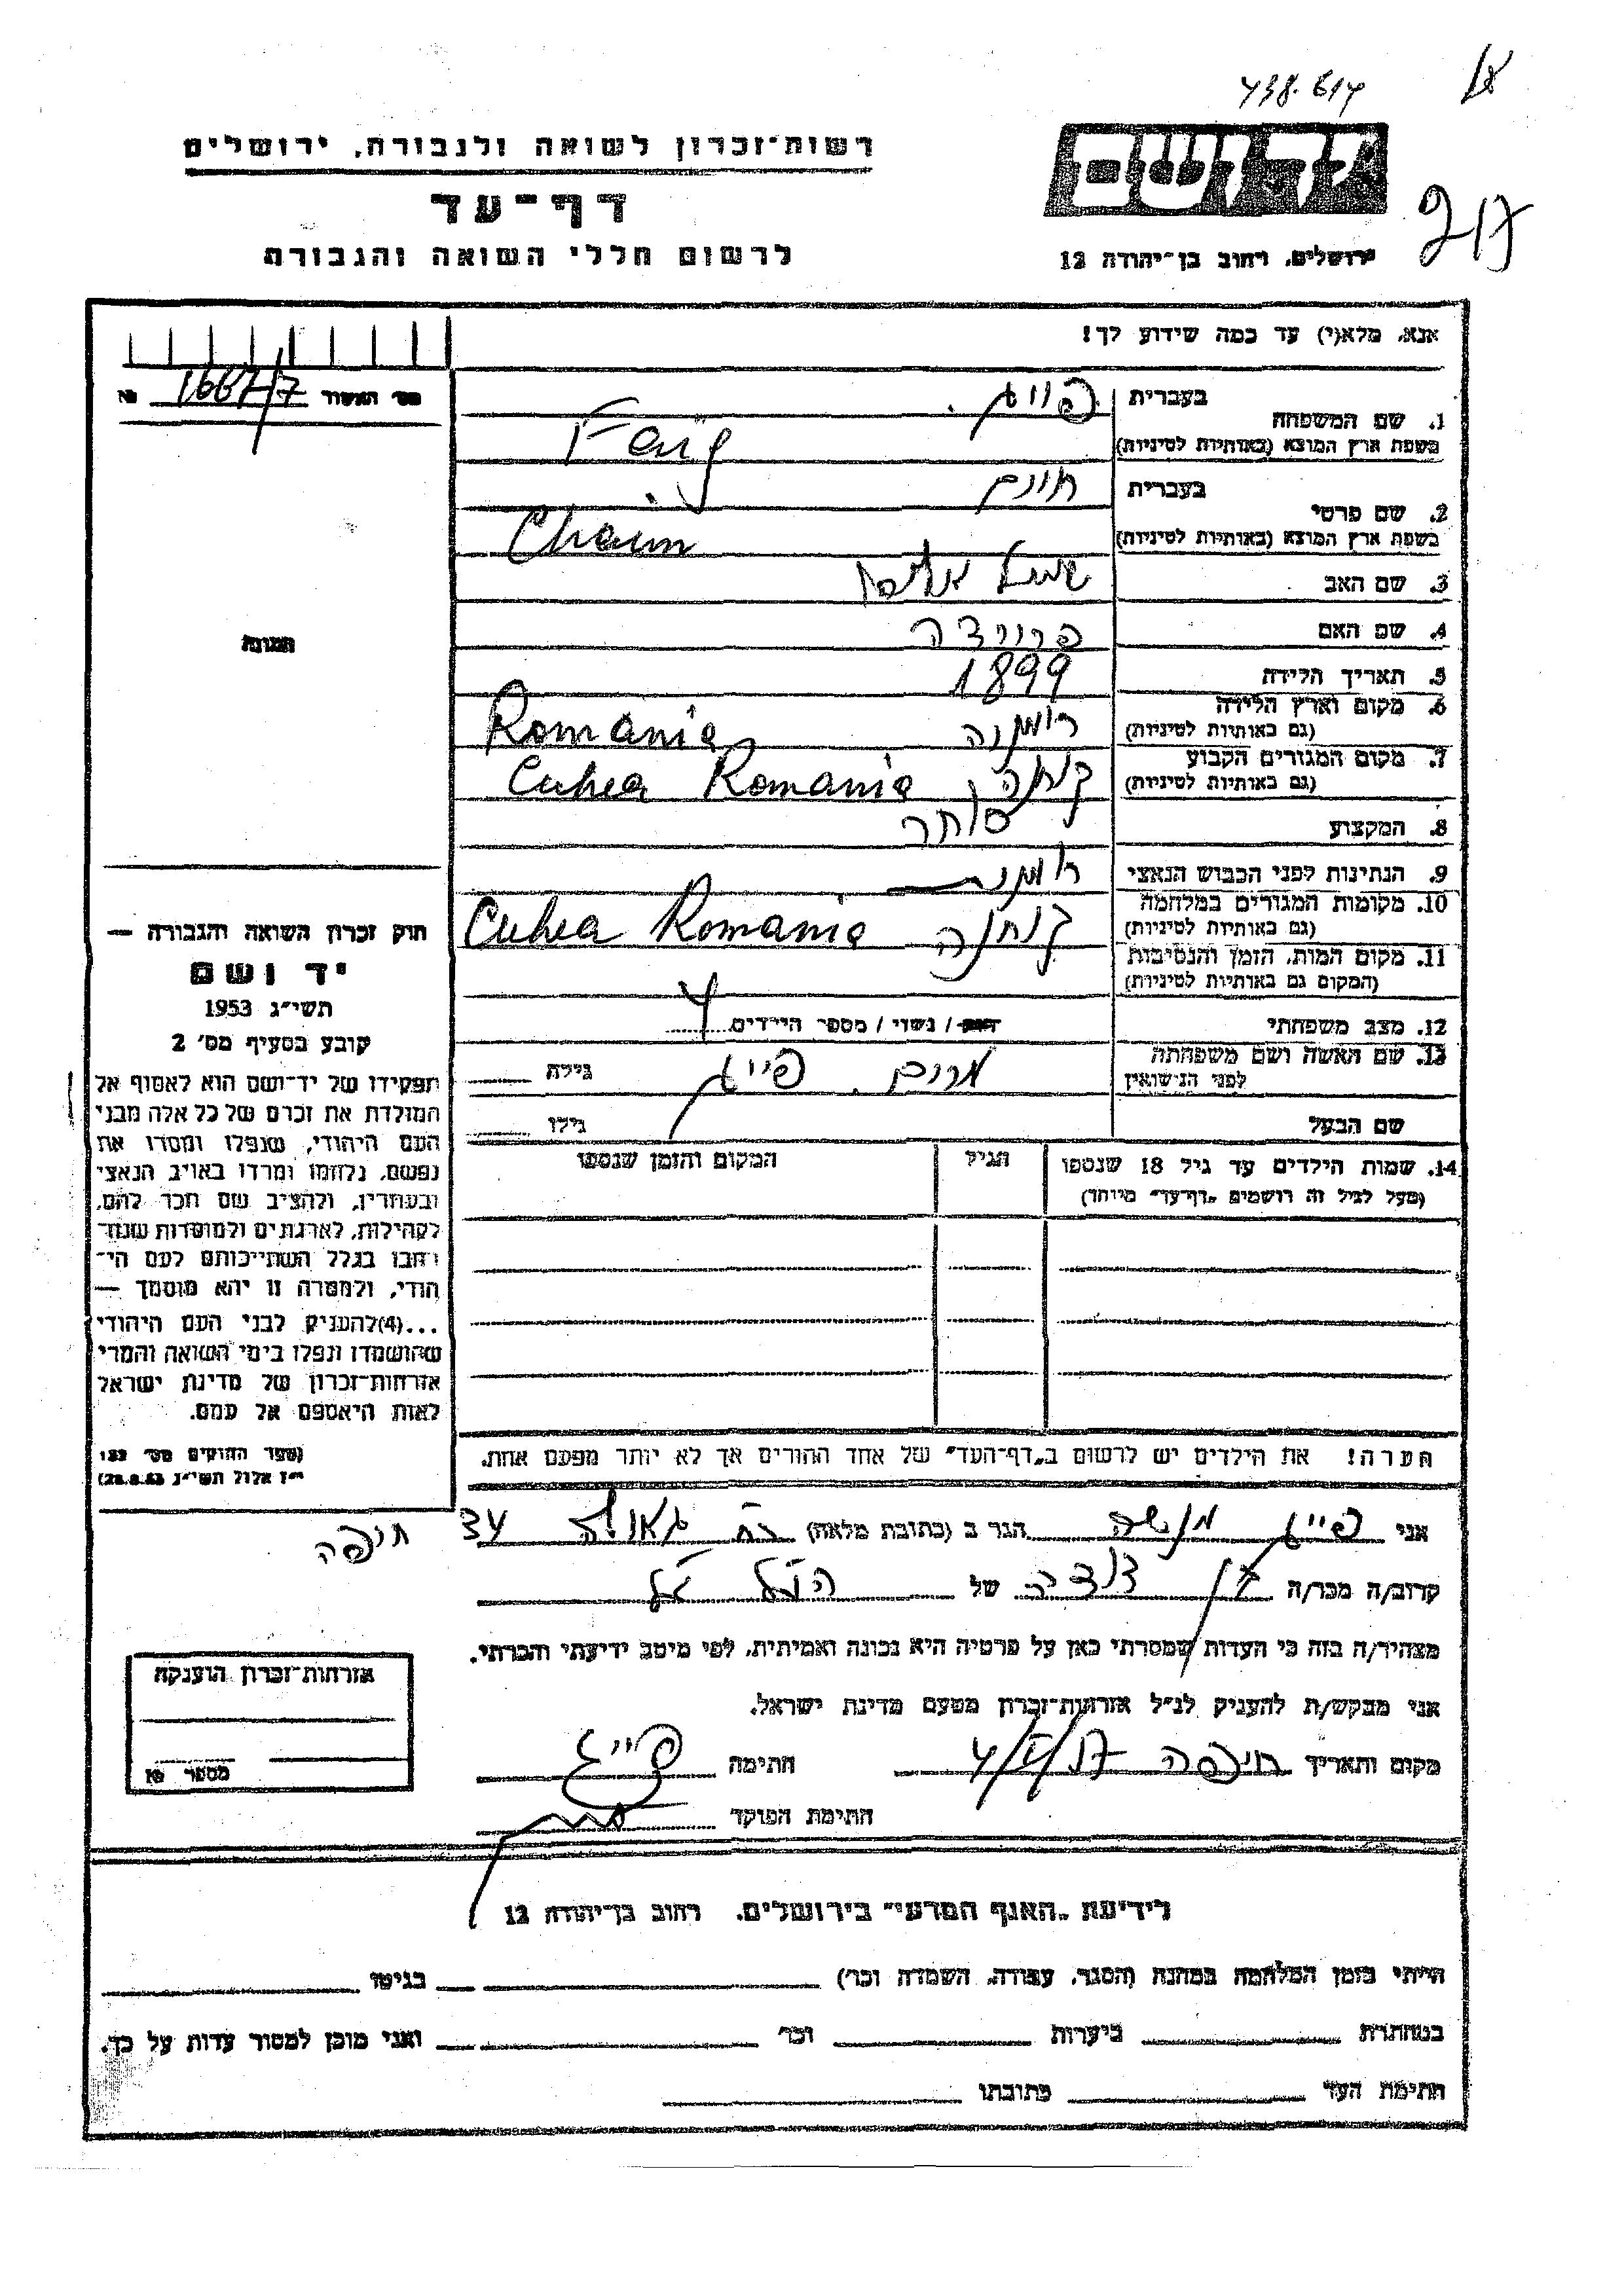 438.614
רשות־זכרון לשואה ולגבורה, ירושלים
ידושם
דף־עד
לרשום חללי השואה והגבורה
ירושלים, רחוב בן־יהודה 12
אנא, מלא(י) עד כמה שידוע לך!
מס' האשור 1667/7 №
1. שם המשפחה
בעברית פייג
בשפת ארץ המוצא (באותיות לטיניות) Feig
2. שם פרטי
בעברית חיים
בשפת ארץ המוצא (באותיות לטיניות) Chaim
3. שם האב שמואל
4. שם האם
5. תאריך הלידה 1899
6. מקום וארץ הלידה (גם באותיות לטיניות) רומניה Romania
7. מקום המגורים הקבוע (גם באותיות לטיניות) קוחיה Cuhea Romania
8. המקצוע סוחר
9. הנתינות לפני הכבוש הנאצי רומנית
10. מקומות המגורים במלחמה (גם באותיות לטיניות) קוחיה Cuhea Romania
11. מקום המות, הזמן והנסיבות (המקום גם באותיות לטיניות)
12. מצב משפחתי רווק / נשוי / מספר הילדים 4
13. שם האשה ושם משפחתה לפני הנישואין מרים פייג גילה
שם הבעל גילו
14. שמות הילדים עד גיל 18 שנספו
(מעל לגיל זה רושמים "דף־עד" מיוחד)
הגיל
המקום והזמן שנספו
הערה! את הילדים יש לרשום ב"דף־העד" של אחד ההורים אך לא יותר מפעם אחת.
התמונה
חוק זכרון השואה והגבורה —
יד ושם
תשי"ג 1953
קובע בסעיף מס' 2
תפקידו של יד־ושם הוא לאסוף אל
המולדת את זכרם של כל אלה מבני
העם היהודי, שנפלו ומסרו את
נפשם, נלחמו ומרדו באויב הנאצי
ובעוזריו, ולהציב שם וזכר להם,
לקהילות, לארגונים ולמוסדות שנח־
רבו בגלל השתייכותם לעם הי־
הודי, ולמטרה זו יהא מוסמך —
...(4) להעניק לבני העם היהודי
שהושמדו ונפלו בימי השואה והמרי
אזרחות־זכרון של מדינת ישראל
לאות היאספם אל עמם.
(ספר החוקים מס' 132
י"ז אלול תשי"ג 28.8.53)
אני פייג מנשה הגר ב (כתובת מלאה) רח' גאולה 34 חיפה
קרוב/ה מכר/ה בן דודה של
מצהיר/ה בזה כי העדות שמסרתי כאן על פרטיה היא נכונה ואמיתית, לפי מיטב ידיעתי והכרתי.
אני מבקש/ת להעניק לנ"ל אזרחות־זכרון מטעם מדינת ישראל.
מקום ותאריך חיפה חתימה פייג
חתימת הפוקד
אזרחות־זכרון הוענקה
מספר №
לידיעת "האגף המדעי" בירושלים, רחוב בן־יהודה 12
הייתי בזמן המלחמה במחנה (הסגר, עבודה, השמדה וכו') בגיטו
במחתרת ביערות וכו' ואני מוכן למסור עדות על כך.
חתימת העד כתובתו